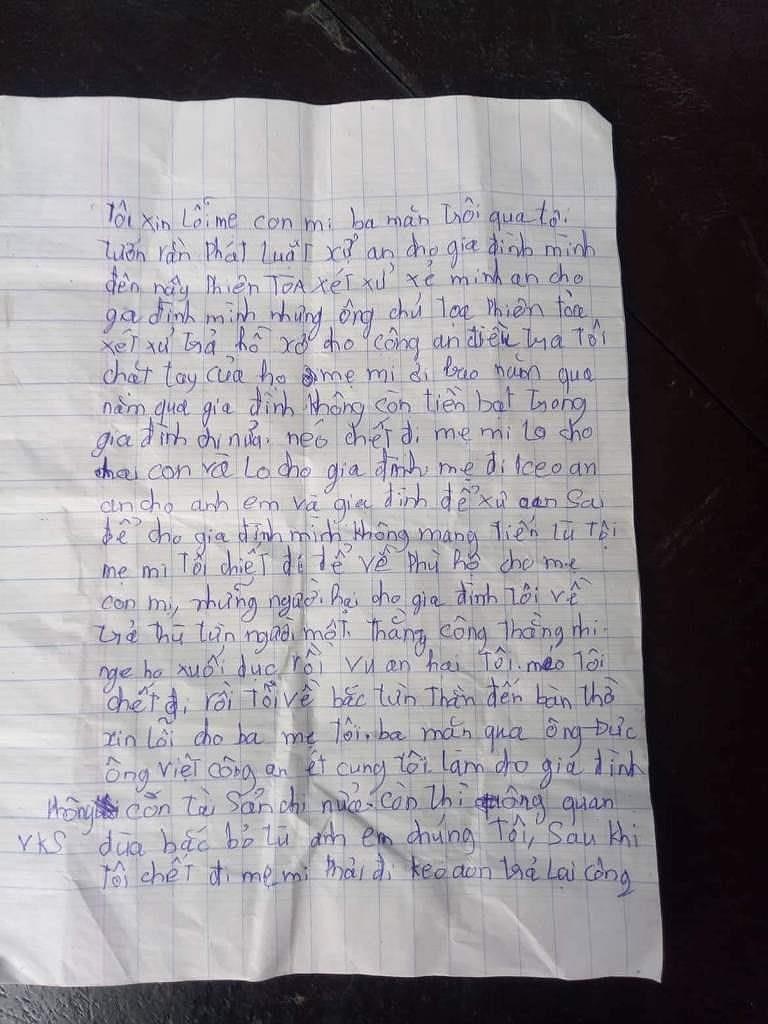 Tôi xin lỗi mẹ con mi ba mắn trôi qua tôi
tưởn rằn Phát Luất xử an cho gia đình mình
đên nây Phiên TOA XéT Xử xẻ minh an cho
gia đình mình nhưng ông chủ Toạ Phiên tòa
xét xử trả hồ xơ cho công an điều tra Tôi
chát tay của họ mẹ mi đi bao nằm qua
nằm qua gia đình không còn tiền bạt trong
gia đình chi nửa. néo chết đi mẹ mi lo cho
con và Lo cho gia đình. mẹ đi keo an
an cho anh em và gia đình để xử oan Sai
để cho gia đình mình không mang tiến tù Tội
mẹ mi Tôi chiết đi để về Phù hô cho mẹ
con mi, những người hại cho gia đình tôi về
trả thù từn người một. Thằng công Thằng nhi
nge họ xuối dục rồi vu an hai Tôi. néo Tôi
chết đi rồi Tôi về bắc từn Thằn đến bàn thờ
xin lỗi cho ba mẹ tôi. ba mắn qua ông Đưc
ông việt công an ét cung tôi làm cho gia đình
không còn tài Sản chi nửa. còn Thì ông quan
VKS dùa bắc bỏ tù anh em chúng Tôi, Sau khi
Tôi chết đi mẹ mi Phải đi keo aon trả lại công